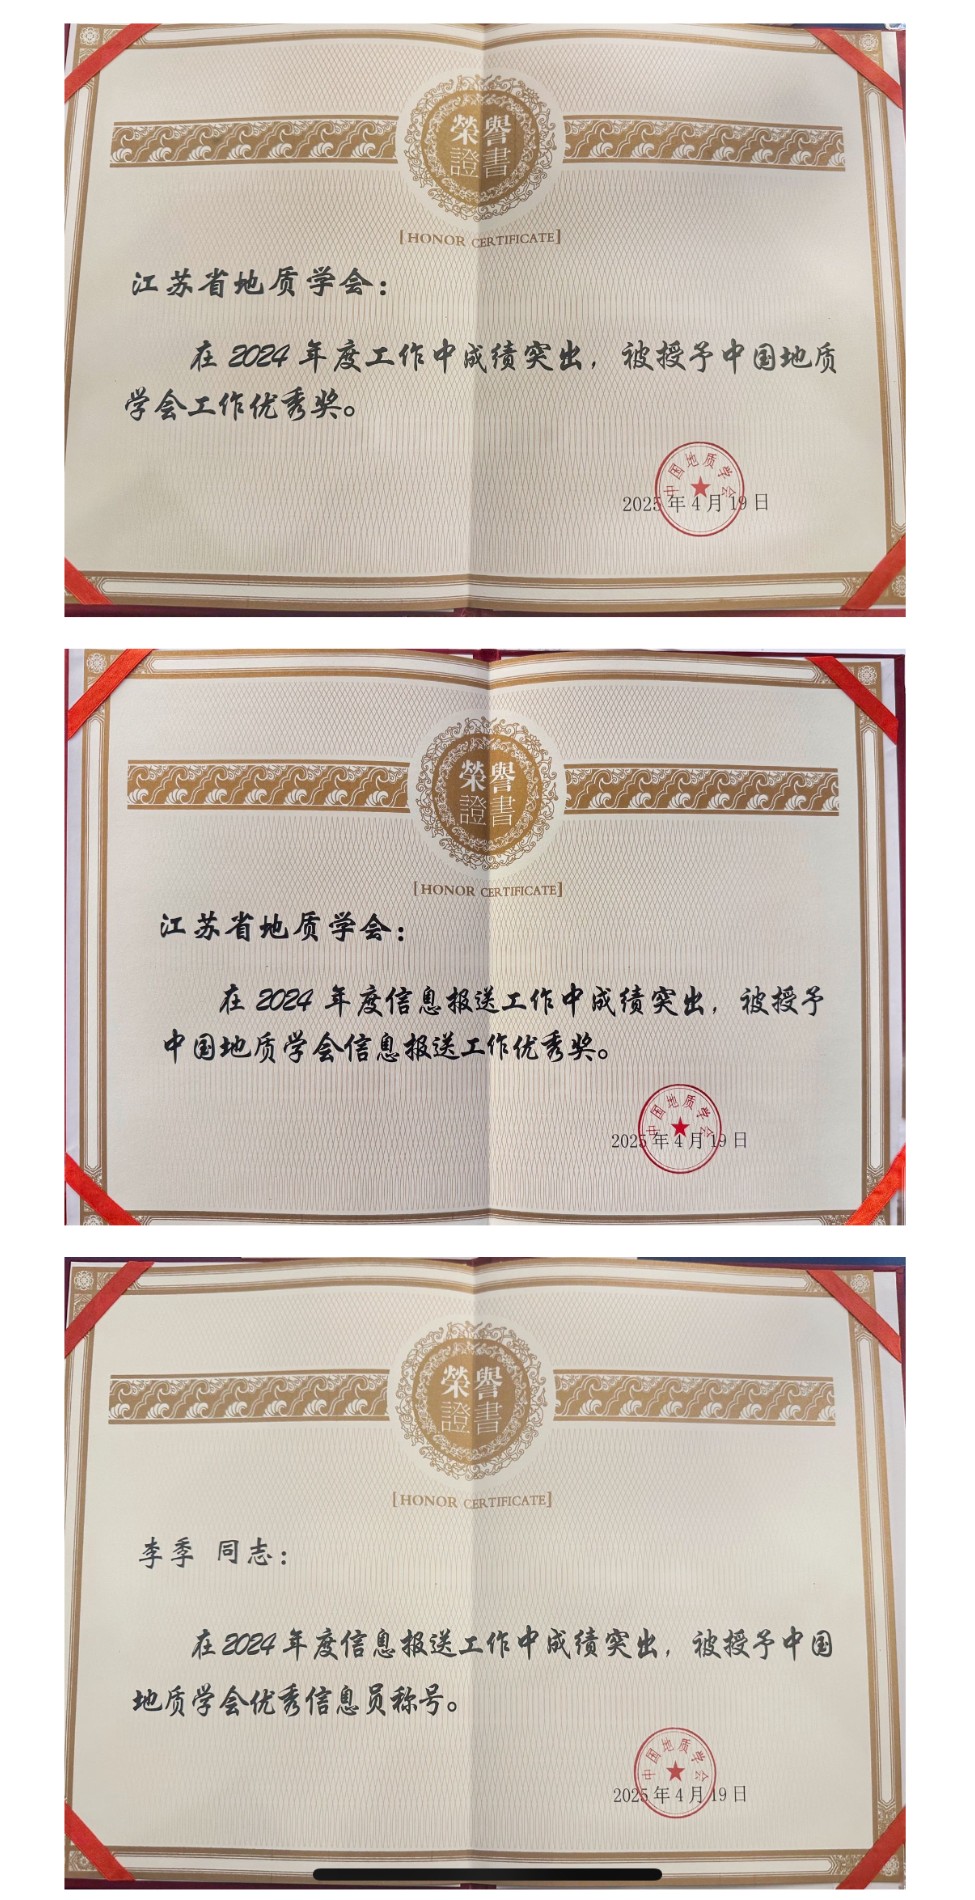 榮譽
證書
[HONOR CERTIFICATE]
江苏省地质学会：
在2024年度工作中成绩突出，被授予中国地质
学会工作优秀奖。
中国地质学会
2025年4月19日
榮譽
證書
[HONOR CERTIFICATE]
江苏省地质学会：
在2024年度信息报送工作中成绩突出，被授予
中国地质学会信息报送工作优秀奖。
中国地质学会
2025年4月19日
榮譽
證書
[HONOR CERTIFICATE]
李季 同志：
在2024年度信息报送工作中成绩突出，被授予中国
地质学会优秀信息员称号。
中国地质学会
2025年4月19日